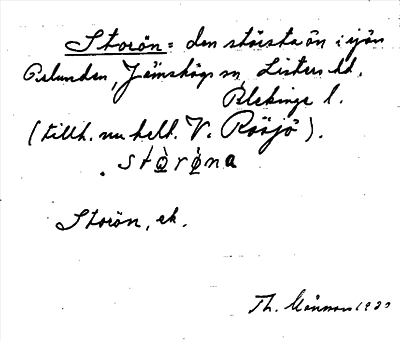 Storön = den största ön i sjön
Örlunden, Jämshögs sn, Listers hd,
Blekinge l.
(tillh. nu helt. V. Rösjö).
stòrø̀na
Storön, ek.
Th. Månsson 1930